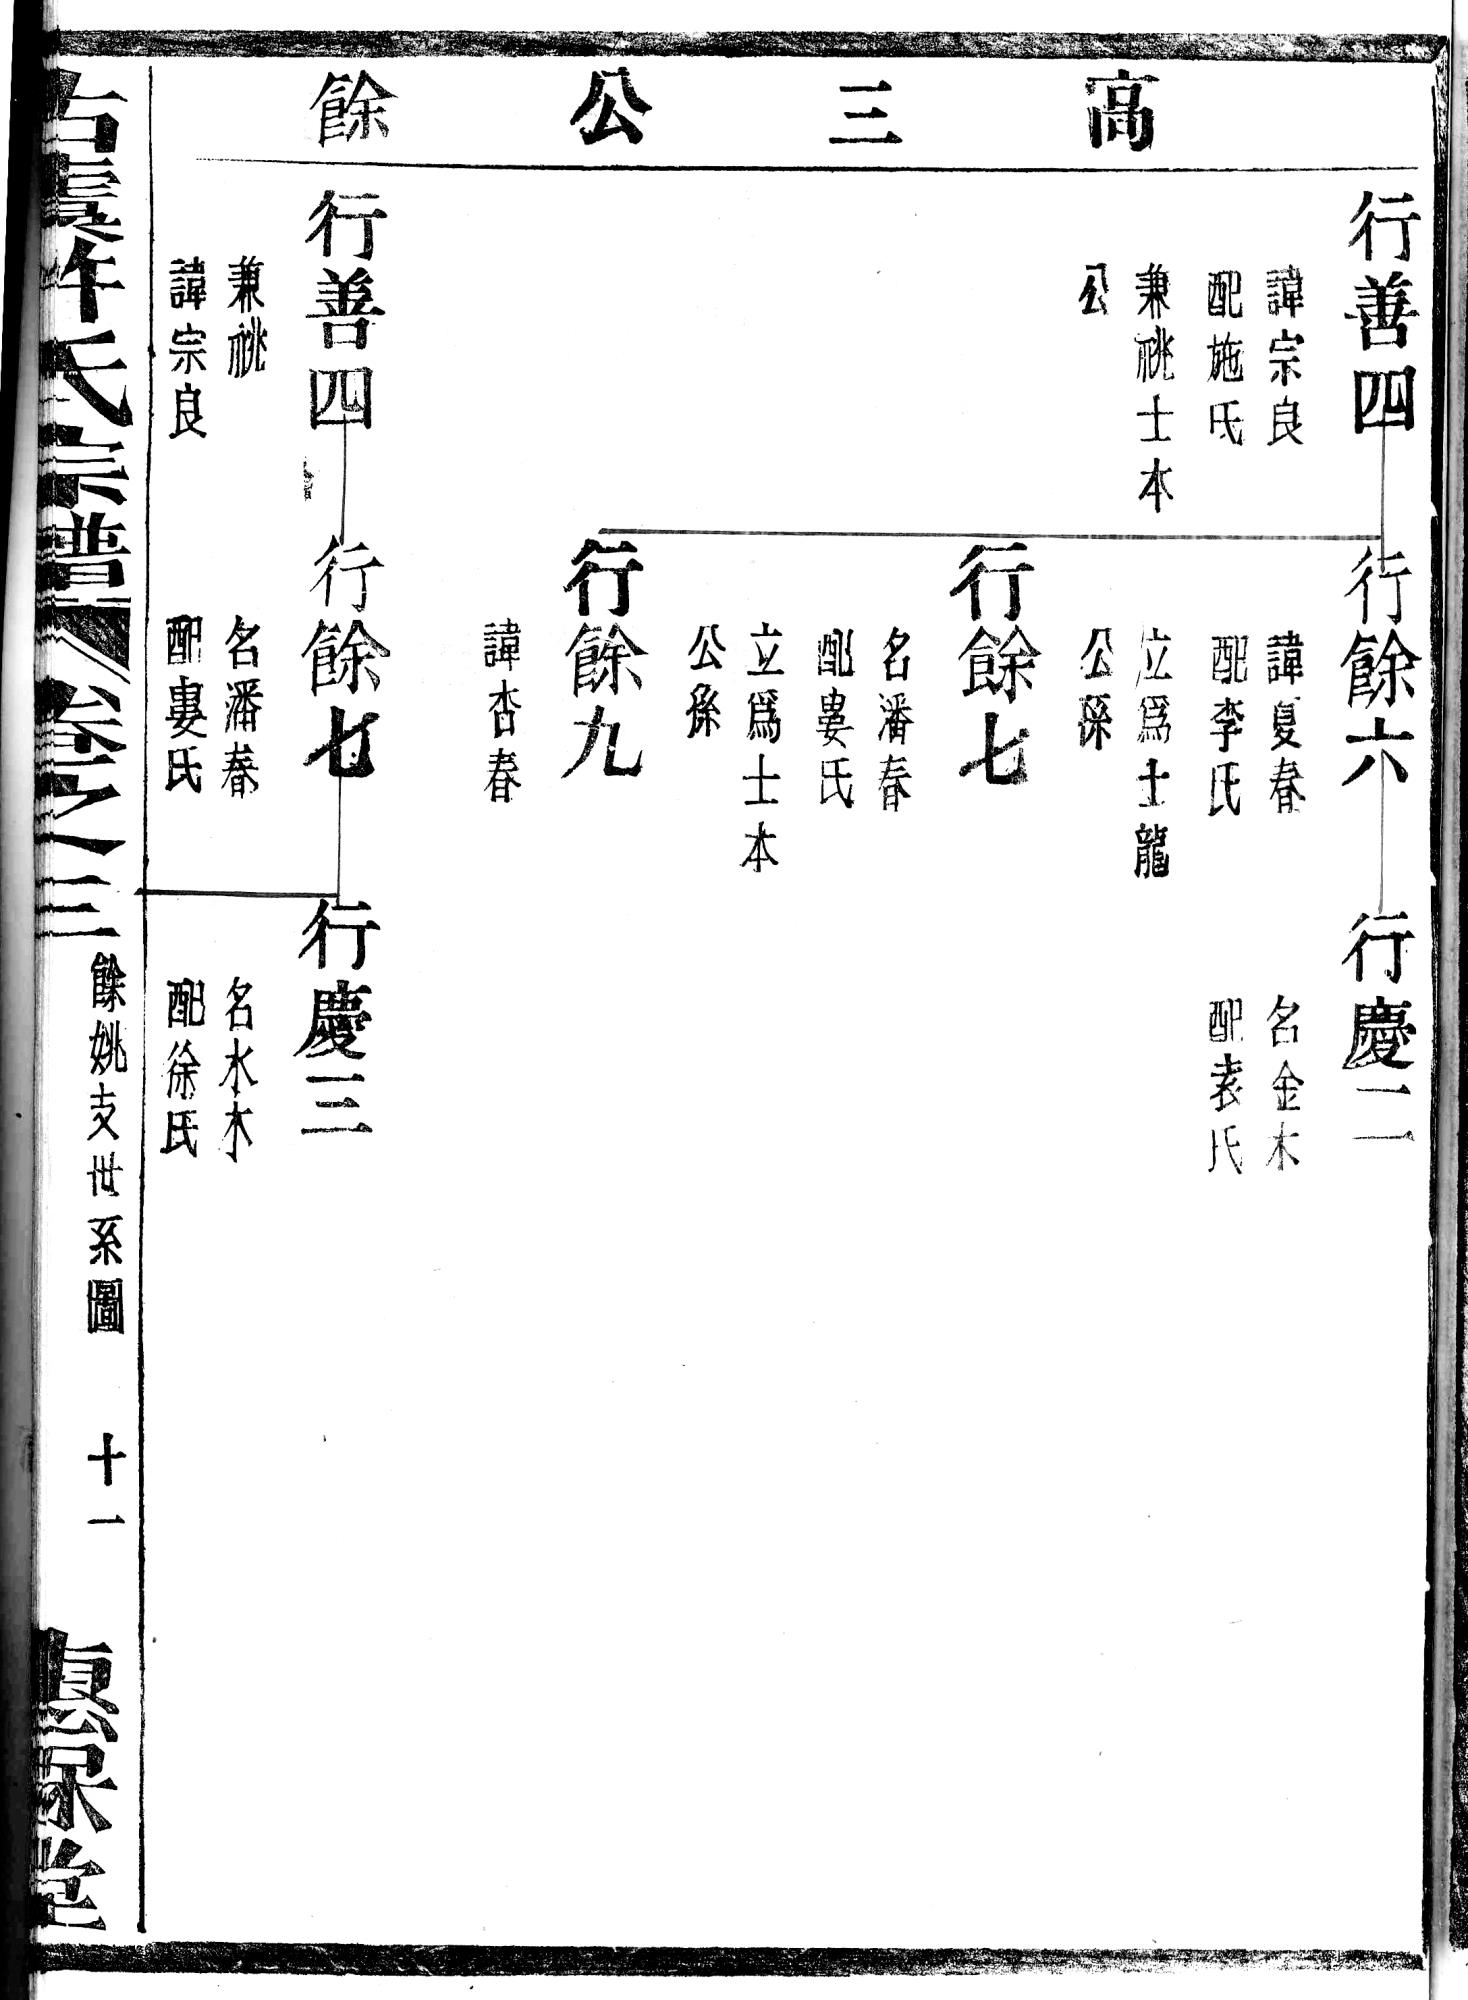 高三公餘
行善四
諱宗良
配施氏
兼祧士本
公
行餘六
諱夏春
配李氏
立爲士龍
公孫
行慶二
名金木
配袁氏
行餘七
名潘春
配婁氏
立爲士本
公孫
行餘九
諱杏春
行善四
兼祧
諱宗良
行餘七
名潘春
配婁氏
行慶三
名水木
配徐氏
古虞許氏宗譜
卷之三
餘姚支世系圖
十一